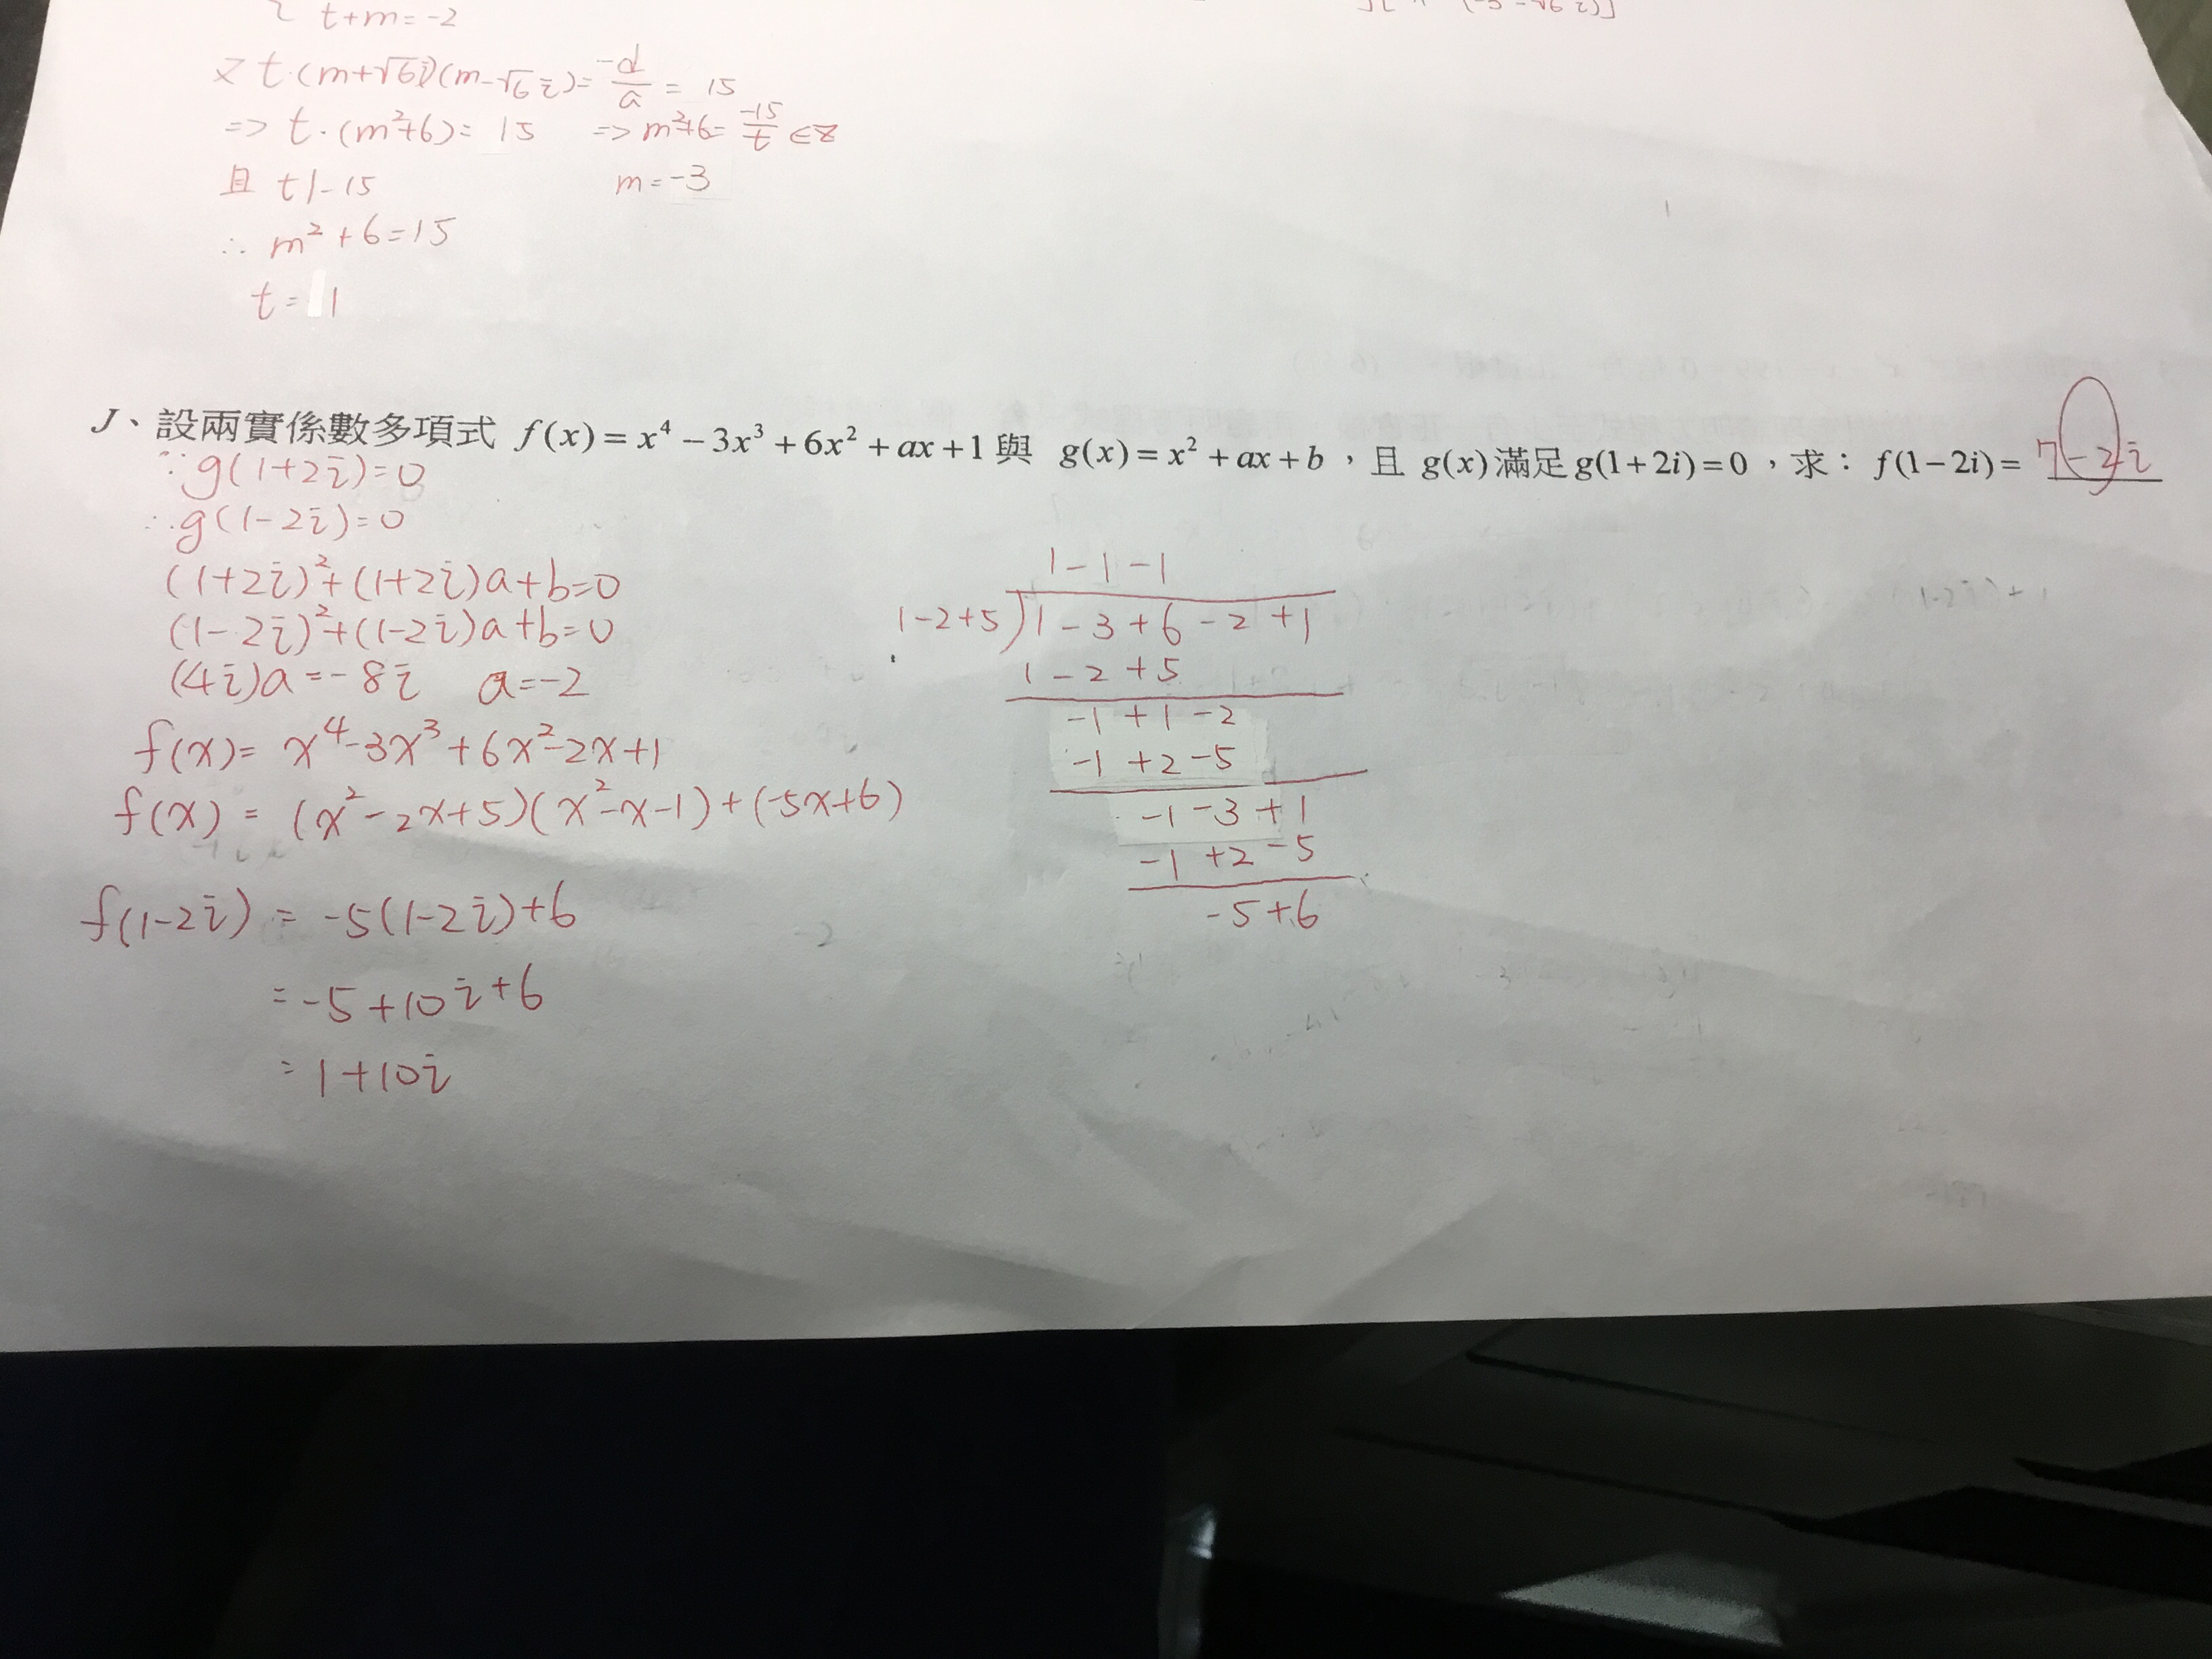 t+m=-2
又 t·(m+√6i)(m-√6i)=-d/a = 15
=> t·(m²+6)=15 => m²+6=-15/t ∈Z
且 t|-15 m=-3
∴ m²+6=15
t=1
J、設兩實係數多項式 f(x)=x⁴-3x³+6x²+ax+1與 g(x)=x²+ax+b，且 g(x)滿足g(1+2i)=0，求：f(1-2i)= 7-2i
∵g(1+2i)=0
∴g(1-2i)=0
(1+2i)²+(1+2i)a+b=0
(1-2i)²+(1-2i)a+b=0
(4i)a=-8i a=-2
f(x)=x⁴-3x³+6x²-2x+1
f(x)=(x²-2x+5)(x²-x-1)+(-5x+6)
f(1-2i)=-5(1-2i)+6
=-5+10i+6
=1+10i
1-1-1
1-2+5)1-3+6-2+1
1-2+5
-1+1-2
-1+2-5
-1-3+1
-1+2-5
-5+6